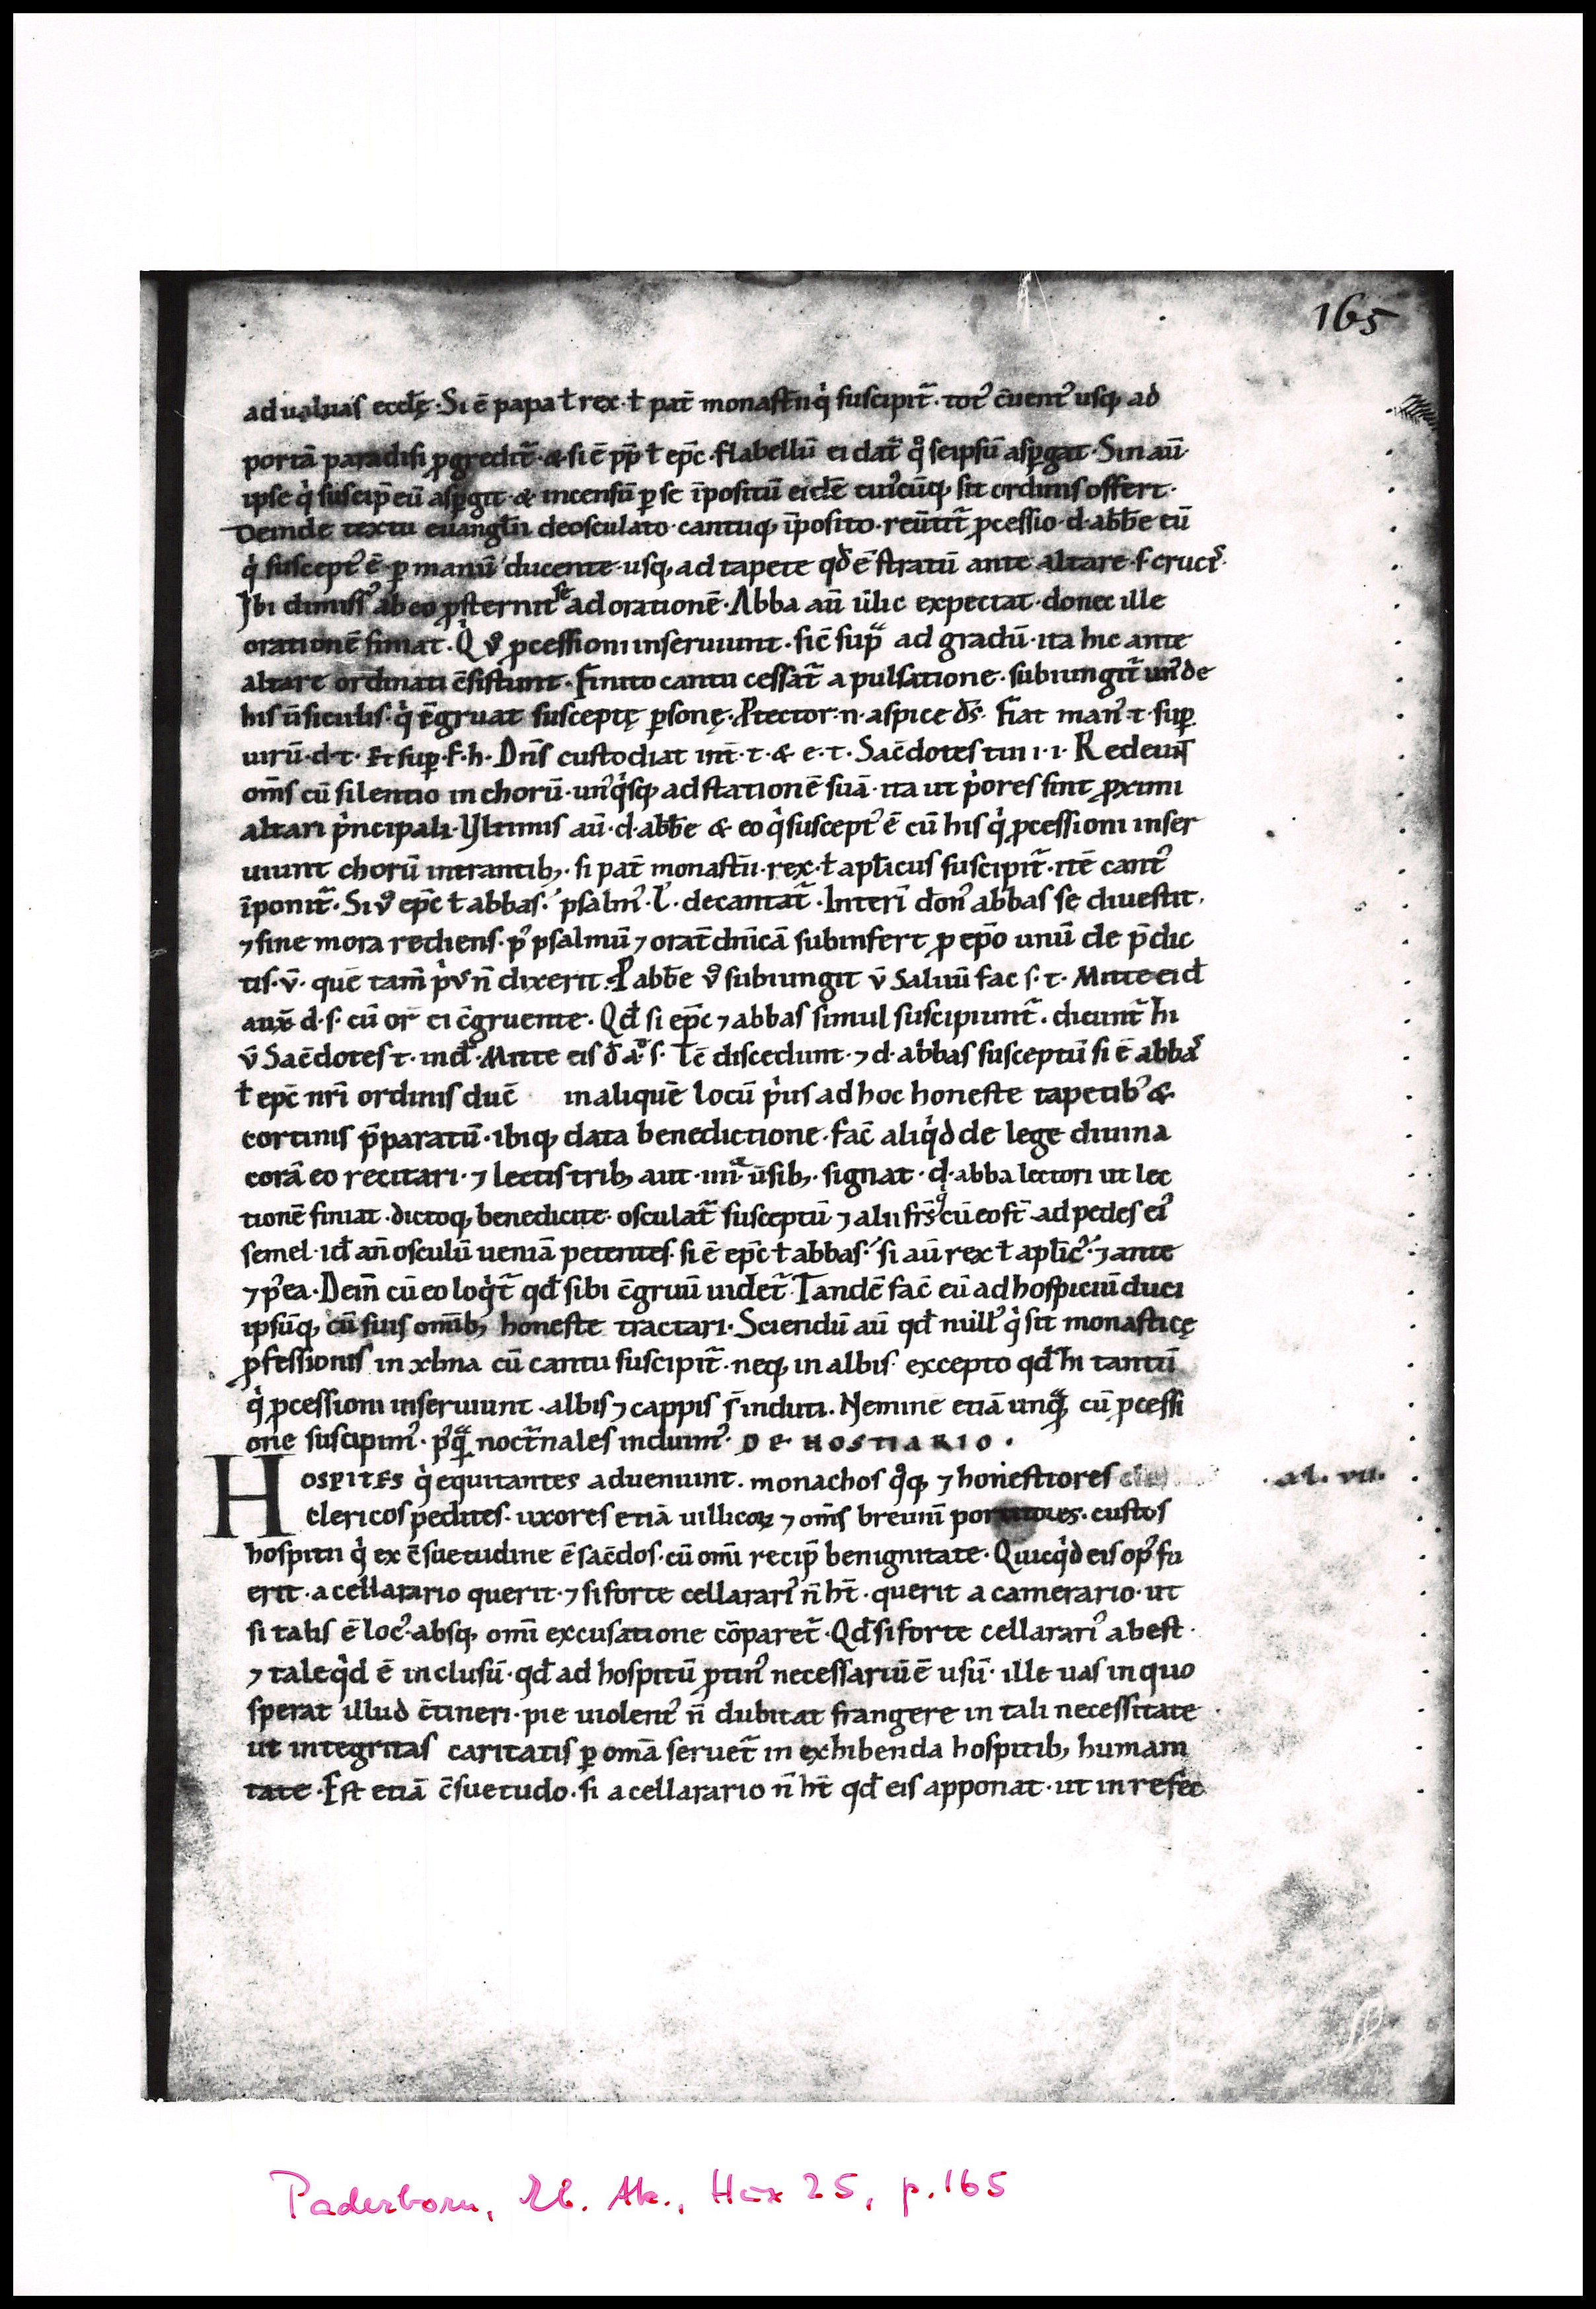 165
ad ualuas eccłę · Si ē papa ł rex · ł pat̄ monast̄ii q̇ suscipit᷑ · tot᷒ c̄uent᷒ usq; ad
portā paradisi ꝓgredit᷑ · & si ē pp̄ ł ep̄c · flabellū ei dat᷑ qͦ seipsū asꝑgat · Sin aū ·
ipse q̇ suscip̄ eū asꝑgit · & incensū ꝑ se īpositū eidē cuiꝰcūq; sit ordinis offert ·
Deinde textu euanglii deosculato · cantuq; īposito · reūtit᷑ ꝓcessio · d · abbe cū
q̇ suscept᷒ ē ꝑ manū ducente · usq; ad tapete qđ ē stratū ante altare · s · cruc᷒ ·
Ibi dimiss᷒ ab eo ꝓsternit se ad orationē · Abba aū illic expectat · donec ille
orationē finiat · Q u᷒ ꝓcessioni inseruiunt · sic̄ sup̃ ad gradū · ita hic ante
altare ordinati c̄sistunt · Finito cantu cessat᷑ a pulsatione · subiungit᷑ un᷒ de
his ūsiculis · q̇ c̄gruat susceptę ꝑsonę · Ꝓtector · n · aspice ds̄ · Fiat man᷒ · t · suꝑ
uirū · d · t · Et suꝑ · f · h · Dn̄s custodiat int̄ · t · & e · t · Sac̄dotes tui i · i · Redeunt
om̄s cū silentio in chorū · un᷒q̇sq; ad stationē suā · ita ut p̍ores sint ꝓximi
altari p̍ncipali · Ultimis aū · d · abbe & eo q̇ suscept᷒ ē cū his q̇ ꝓcessioni inser
uiunt chorū intrantib; · si pat̄ monast̄ii · rex · ł apłicus suscipit᷑ · itē cant᷒
īponit᷑ · Si u᷒ ep̄c ł abbas · psalm᷒ · L᷒ · decantat᷑ · Interī don᷒ abbas se diuestit ·
⁊ sine mora rediens · p᷒ psalmū ⁊ orat̄ dn̄icā subinfert ꝓ ep̄o unū de p̄dic
tis · v̄ · quē tam̄ p̍us n̄ dixerit · Ꝓ abbe u᷒ subiungit v̄ Saluū fac s · t · Mitte ei d
aux̄ d · s · cū or̄ ei c̄gruente · Qđ si ep̄c ⁊ abbas simul suscipiunt᷑ · dicunt᷑ hi
v̄ Sac̄dotes t · ind̄ · Mitte eis d̄ a᷒ · s · Tc̄ discedunt · ⁊ d · abbas susceptū si ē abba᷒
ł ep̄c nr̄i ordinis duc̄ in aliquē locū p̍us ad hoc honeste tapetib᷒ &
cortinis p̄paratū · ibiq; data benedictione · fac̄ aliq̇d de lege diuina
corā eo recitari · ⁊ lectis trib; aut · iiii · ūsib; · signat · d · abba lectori ut lec
tionē finiat · dictoq; benedicite · osculat᷑ susceptū ⁊ alii frs̄ q̇ cū eo st̄ · ad pedes ei᷒
semel · id an̄ osculū ueniā petentes · si ē ep̄c ł abbas · si aū rex ł apłic᷒ · ⁊ ante
⁊ p᷒ea · Dein̄ cū eo loq̇t᷑ qđ sibi c̄gruū uidet᷑ · Tandē fac̄ eū ad hospiciū duci
ipsūq; cū suis omīb; honeste tractari · Sciendū aū qđ null᷒ q̇ sit monasticę
ꝓfessionis in xłma cū cantu suscipit᷑ · neq; in albis · excepto qđ hi tantū
q̇ ꝓcessioni inseruiunt · albis ⁊ cappis s̄ induti · Neminē etiā unq̃ cū ꝓcessi
one suscipim᷒ · p᷒q̃ noct᷑nales induim᷒ · DE HOSTIARIO ·
HOSPITES q̇ equitantes adueniunt · monachos qͦq; ⁊ honestiores
clericos pedites · uxores etiā uillicoꝝ ⁊ om̄s breuiū portitores · custos
hospitii q̇ ex c̄suetudine ē sac̄dos · cū omī recip̄ benignitate · Quicq̇d eis op᷒ fu
erit · a cellarario querit · ⁊ si forte cellarari᷒ n̄ ht̄ · querit a camerario · ut
si talis ē loc᷒ · absq; omī excusatione cōparet᷑ · Qđ si forte cellarari᷒ abest ·
⁊ tale q̇d ē inclusū · qđ ad hospitū ꝓtin᷒ necessariū ē usū · ille uas in quo
sperat illud c̄tineri · pie uiolent᷒ n̄ dubitat frangere in tali necessitate ·
ut integritas caritatis ꝑ omā seruet᷑ in exhibenda hospitib; humani
tate · Est etiā c̄suetudo · si a cellarario n̄ ht̄ qđ eis apponat · ut in refec
Paderborn, Eb. Ak., Hux 25, p. 165